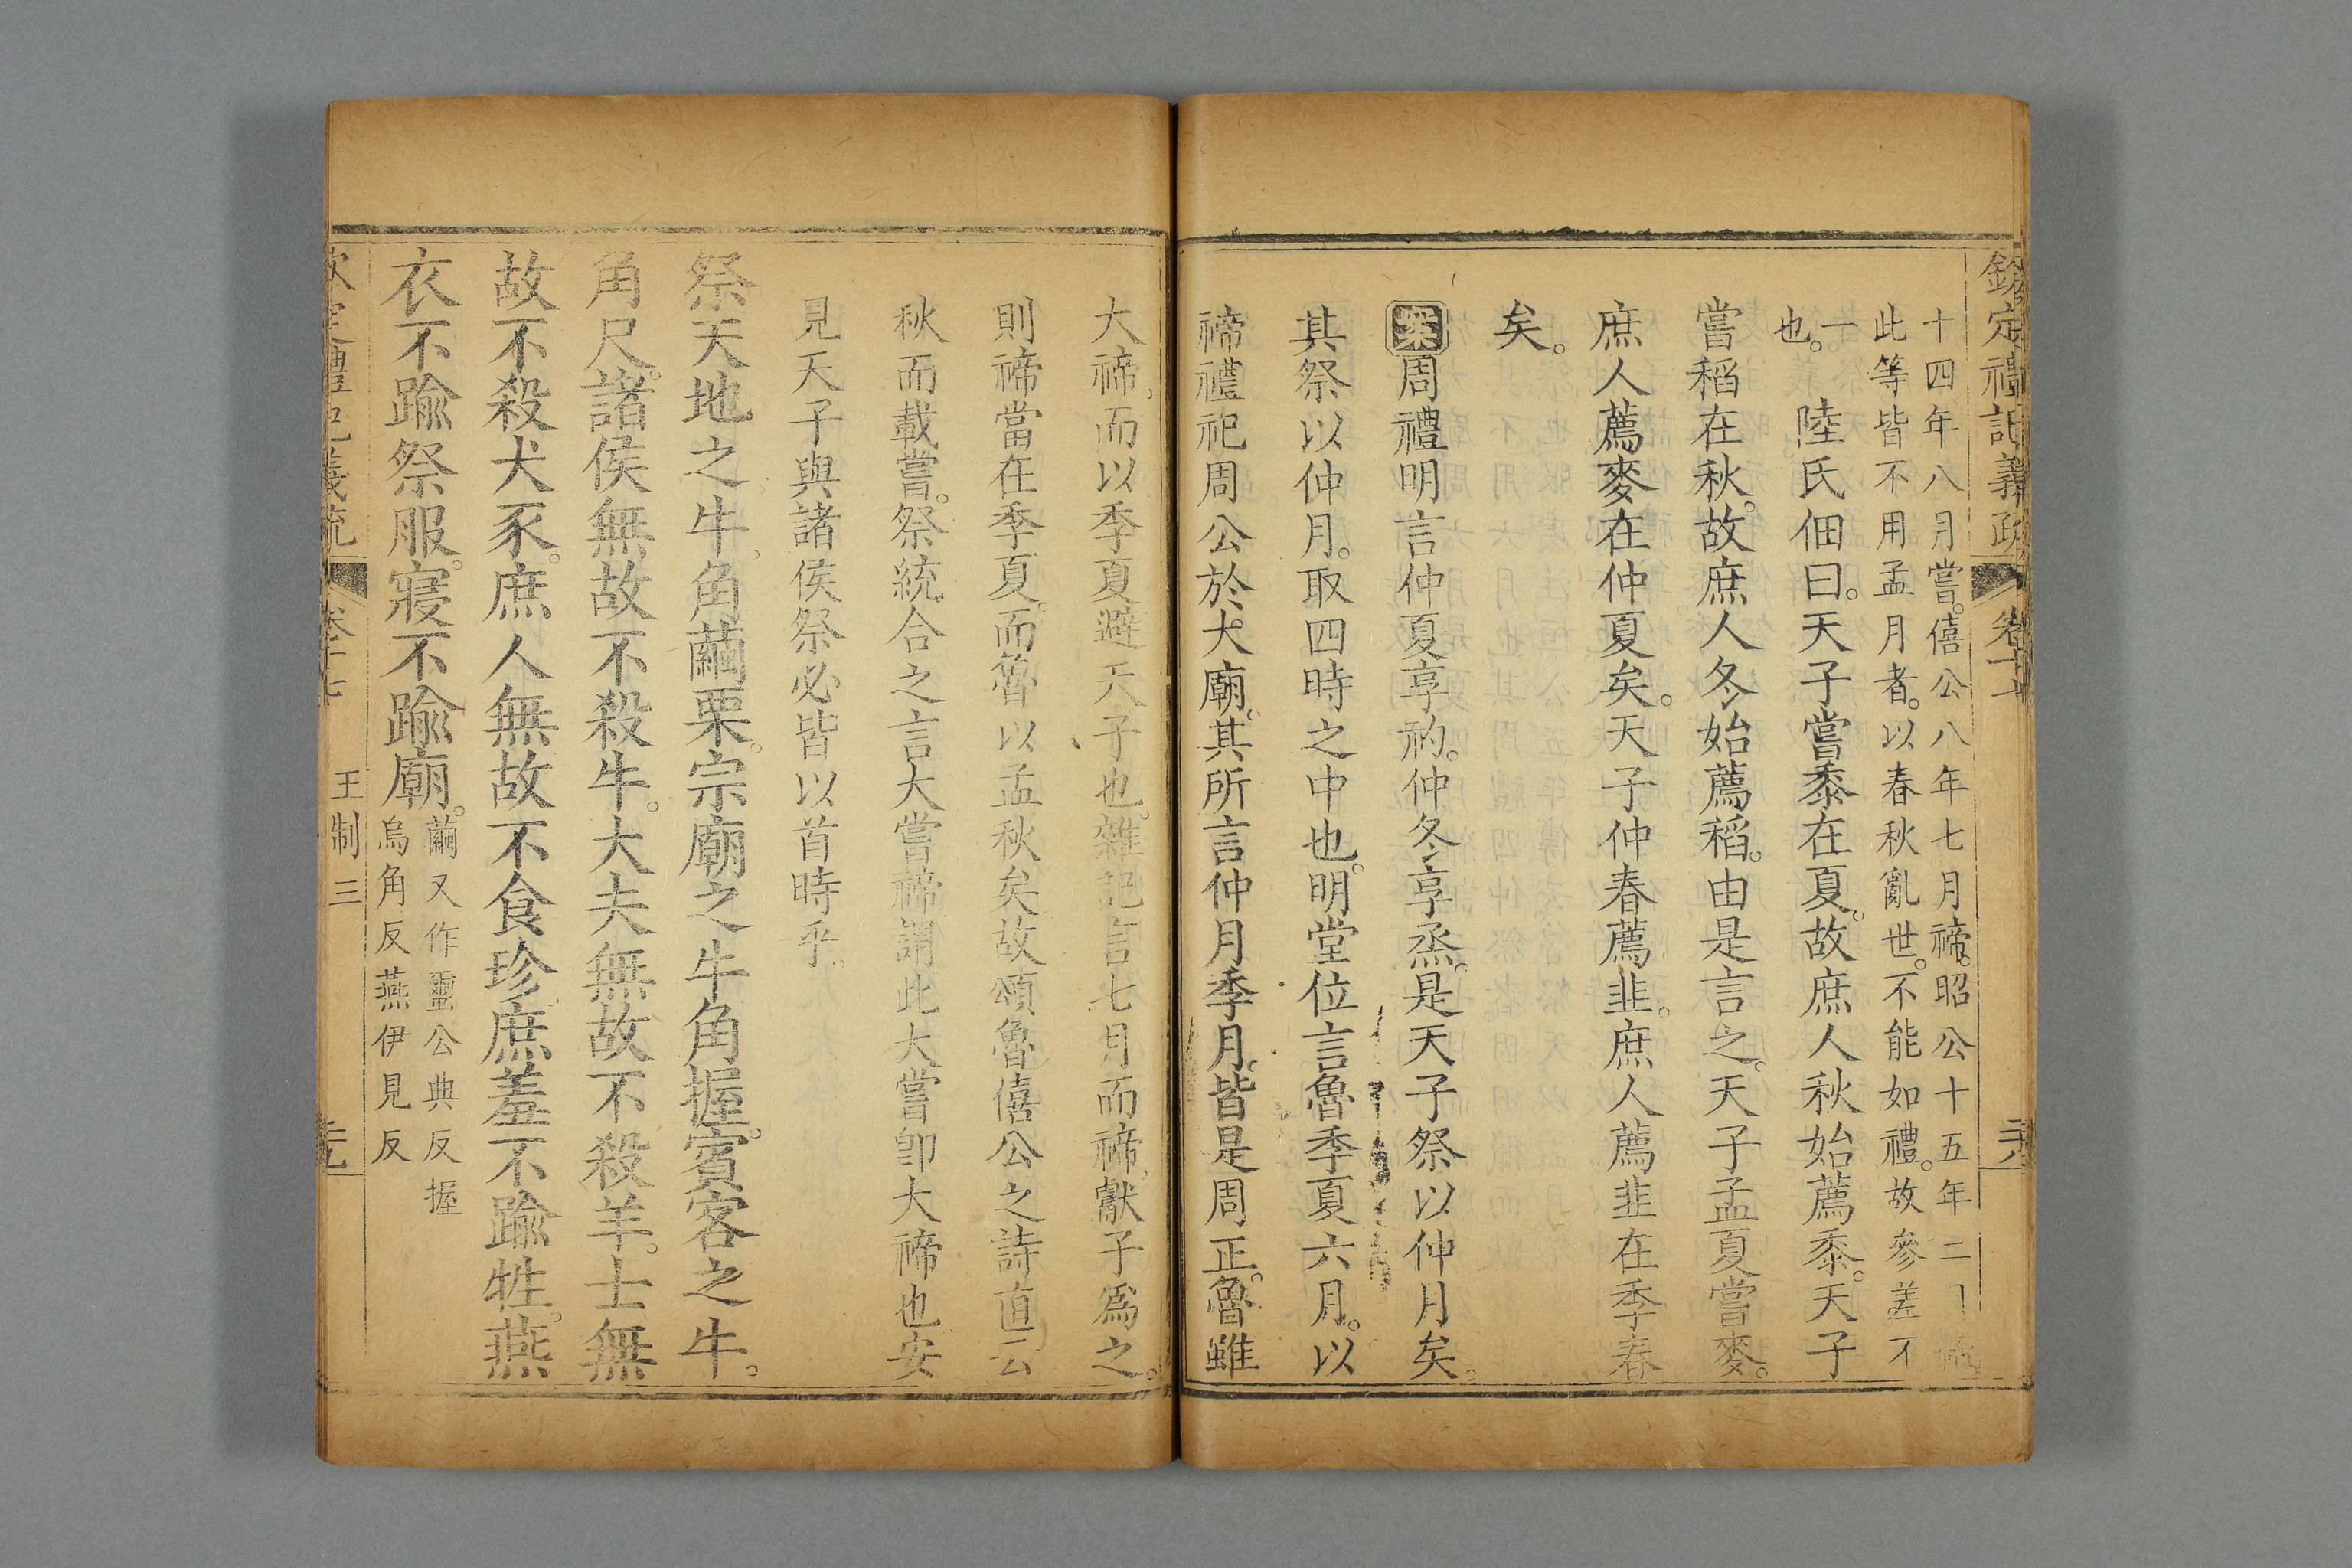 欽定禮記義疏 卷十七
十四年八月嘗。僖公八年七月禘。昭公十五年二
此等皆不用孟月者。以春秋亂世。不能如禮。故參差不
一
也。 陸氏佃曰。天子嘗黍在夏。故庶人秋始薦黍。天子
嘗稻在秋。故庶人冬始薦稻。由是言之。天子孟夏嘗麥。
庶人薦麥在仲夏矣。天子仲春薦韭。庶人薦韭在季春
矣。
案周禮明言仲夏享礿。仲冬享烝。是天子祭以仲月矣。
其祭以仲月。取四時之中也。明堂位言魯季夏六月。以
禘禮祀周公於大廟。其所言仲月季月。皆是周正。魯雖
大禘。而以季夏避天子也。雜記言七月而禘。獻子爲之。
則禘當在季夏。而魯以孟秋矣故頌魯僖公之詩直云
秋而載嘗。祭統合之言大嘗禘謂此大嘗卽大禘也安
見天子與諸侯祭必皆以首時乎。
祭天地之牛。角繭栗。宗廟之牛角握。賓客之牛。
角尺。諸侯無故不殺牛。大夫無故不殺羊。士無
故不殺犬豕。庶人無故不食珍。庶羞不踰牲。燕
衣不踰祭服。寢不踰廟。繭又作𧖅公典反握
烏角反燕伊見反
欽定禮記義疏 卷十七 王制三 元